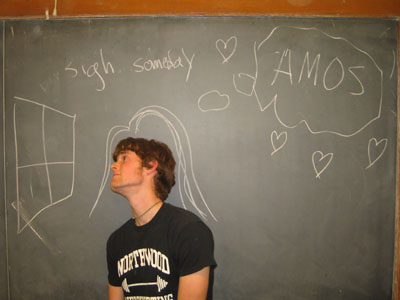 sigh someday
AMOS
NORTHWOOD